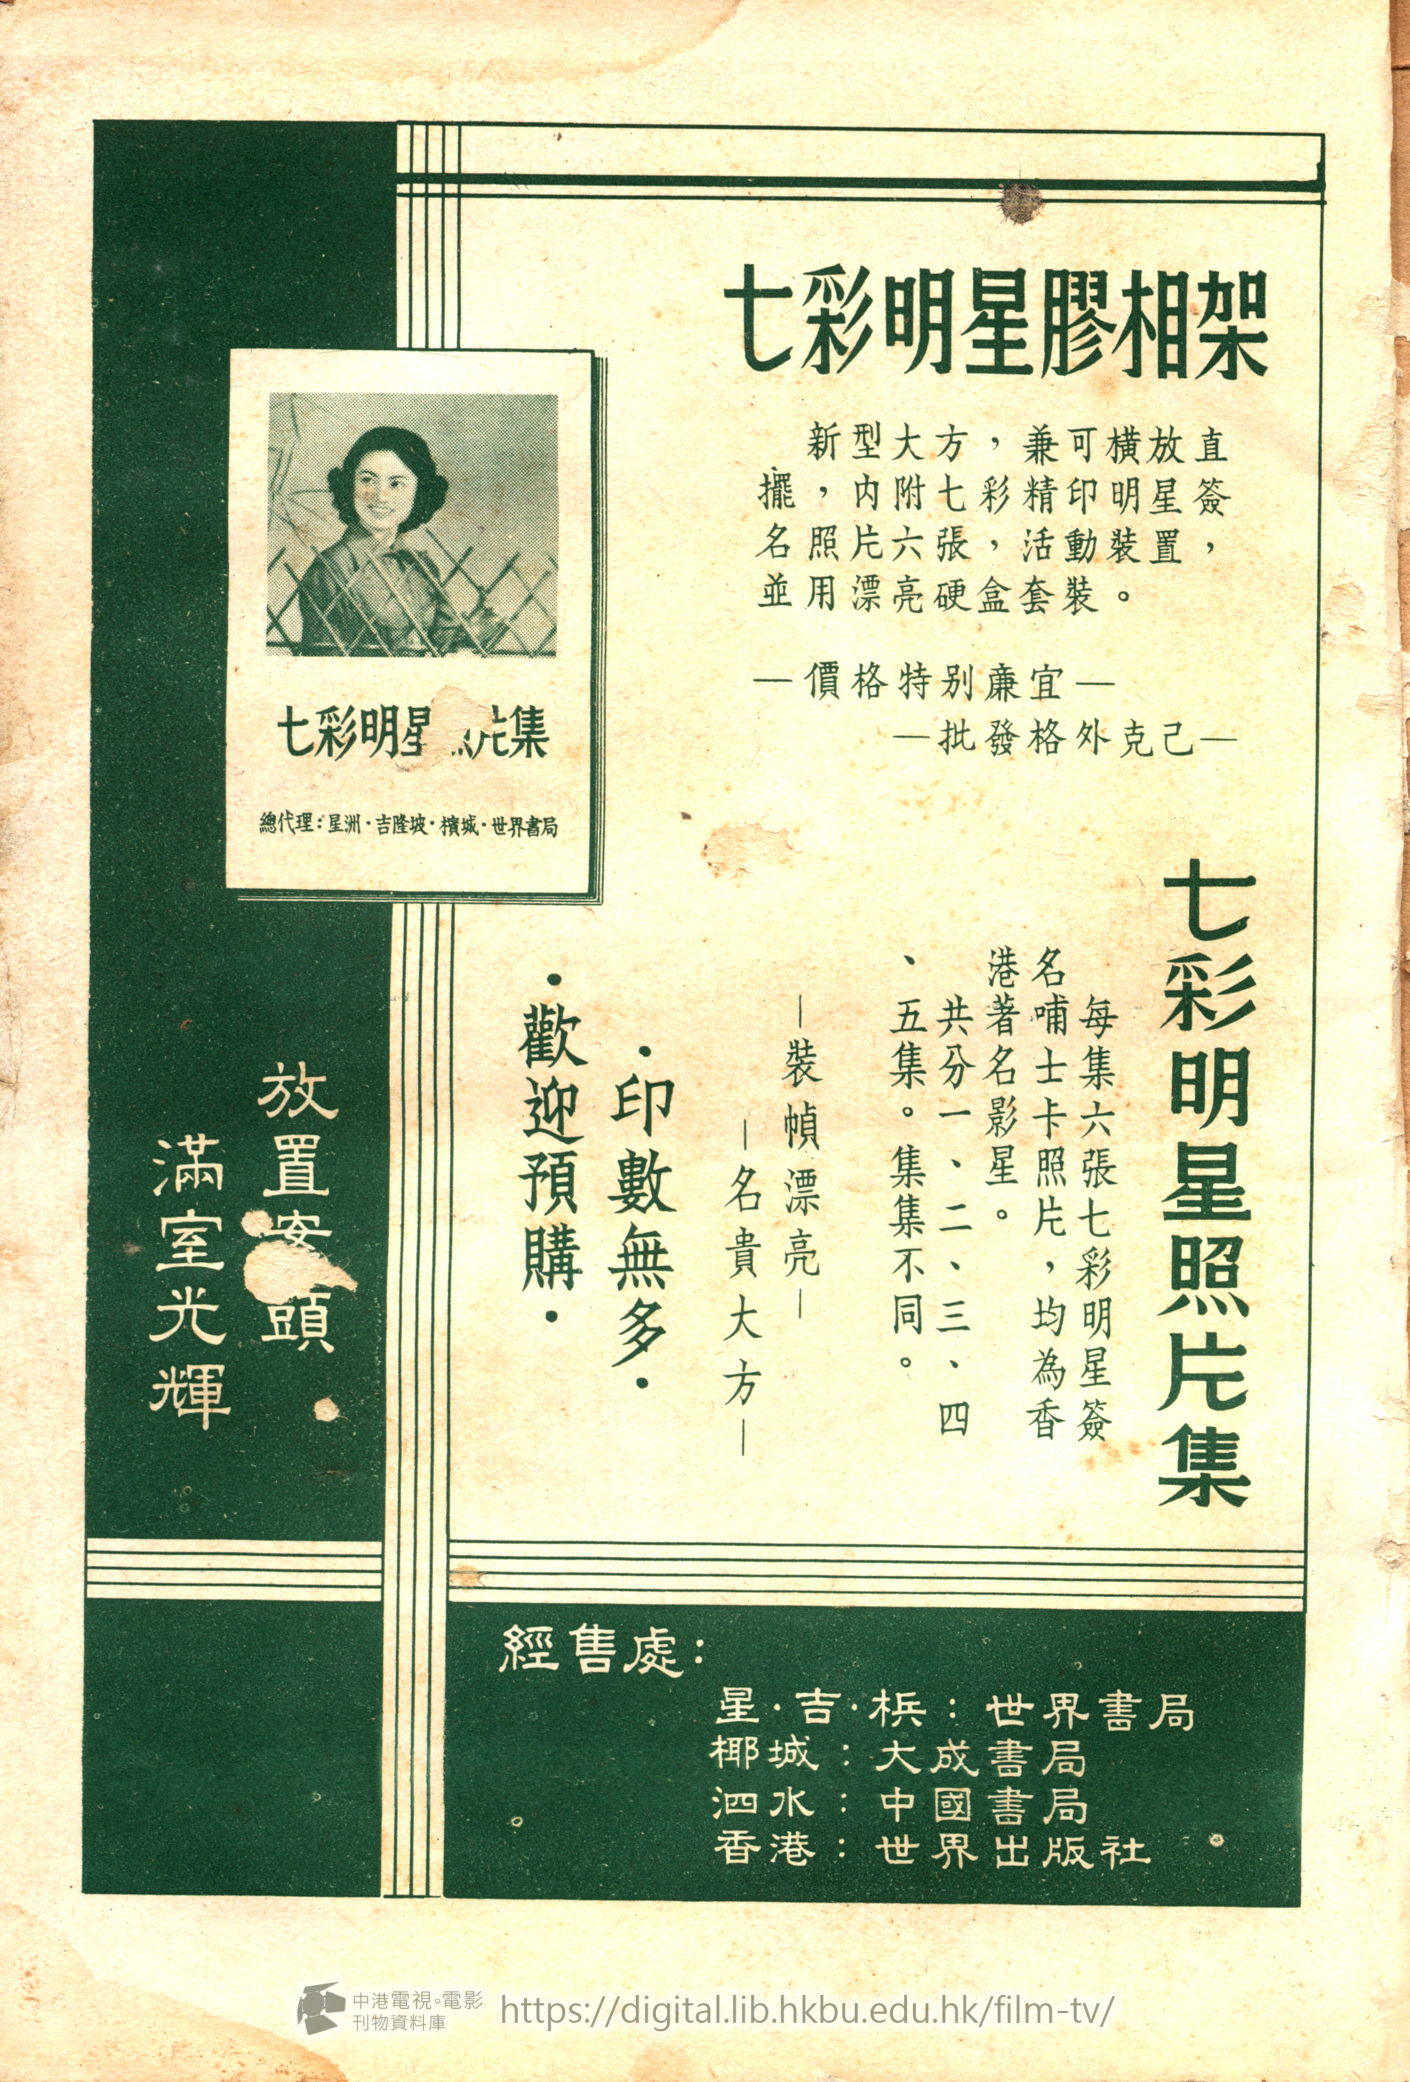 七彩明星膠相架
新型大方，兼可橫放直
擺，內附七彩精印明星簽
名照片六張，活動裝置，
並用漂亮硬盒套裝。
—價格特別廉宜—
—批發格外克己—
七彩明星 片集
總代理：星洲·吉隆坡·檳城·世界書局
七彩明星照片集
每集六張七彩明星簽
名哺士卡照片，均為香
港著名影星。
共分一、二、三、四
、五集。集集不同。
—裝幀漂亮—
—名貴大方—
·印數無多·
·歡迎預購·
放置安頭
滿室光輝
經售處：
星·吉·梹：世界書局
椰城：大成書局
泗水：中國書局
香港：世界出版社
中港電視。電影
刊物資料庫
https://digital.lib.hkbu.edu.hk/film-tv/